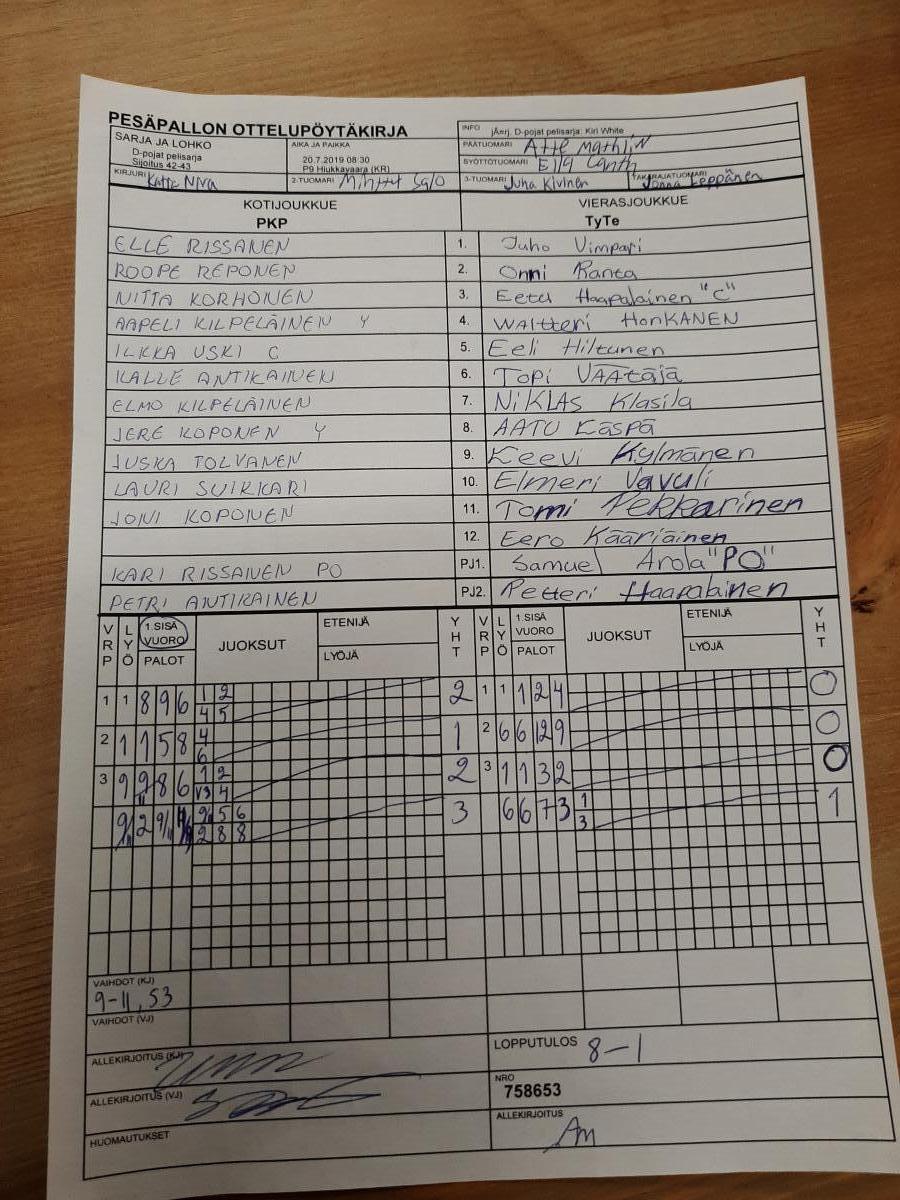 PESÄPALLON OTTELUPÖYTÄKIRJA
SARJA JA LOHKO
D-pojat pelisarja
Sijoitus 42-43
AIKA JA PAIKKA
20.7.2019 08:30
P9 Hiukkavaara (KR)
INFO jÄerj. D-pojat pelisarja: Kiri White
PÄÄTUOMARI Atte Mathlin
SYÖTTÖTUOMARI Ella Canth
KIRJURI Katta Niva
2-TUOMARI Minttu Salo
3-TUOMARI Juha Kivinen
TAKARAJATUOMARI Jonna Leppänen
KOTIJOUKKUE VIERASJOUKKUE
PKP TyTe
ELLE RISSANEN 1. Juho Vimpari
ROOPE REPONEN 2. Onni Ranta
NITTA KORHONEN 3. Eetu Haapalainen "C"
AAPELI KILPELÄINEN Y 4. WALtteri HonKANEN
ILKKA USKI C 5. Eeli Hiltunen
KALLE ANTIKAINEN 6. Topi VÄÄtäjä
ELMO KILPELÄINEN 7. NiKLAS Klasila
JERE KOPONEN Y 8. AATU Käspä
JUSKA TOLVANEN 9. Keevi Kylmänen
LAURI SUIKKARI 10. Elmeri Vavuli
JONI KOPONEN 11. Tomi Pekkarinen
12. Eero Kääriäinen
KARI RISSANEN PO PJ1. Samuel Arola "PO"
PETRI ANTIKAINEN PJ2. Petteri Haapalainen
VRP LYÖ 1.SISÄ VUORO PALOT JUOKSUT ETENIJÄ LYÖJÄ YHT VRP LYÖ 1.SISÄ VUORO PALOT JUOKSUT ETENIJÄ LYÖJÄ YHT
1 1 8 9 6 1 2 2 1 1 1 2 4 0
4 5
2 1 1 5 8 4 1 2 6 6 12 9 0
6
3 9 9/11 8 6 1 2 2 3 1 1 3 2 0
V3 4
9/11 2 9/11 5 6 3 6 6 7 3 1 1
2 8 8 3
VAIHDOT (KJ)
9-11, 53
VAIHDOT (VJ)
ALLEKIRJOITUS (KJ)
LOPPUTULOS 8-1
ALLEKIRJOITUS (VJ)
NRO
758653
HUOMAUTUKSET
ALLEKIRJOITUS
Am